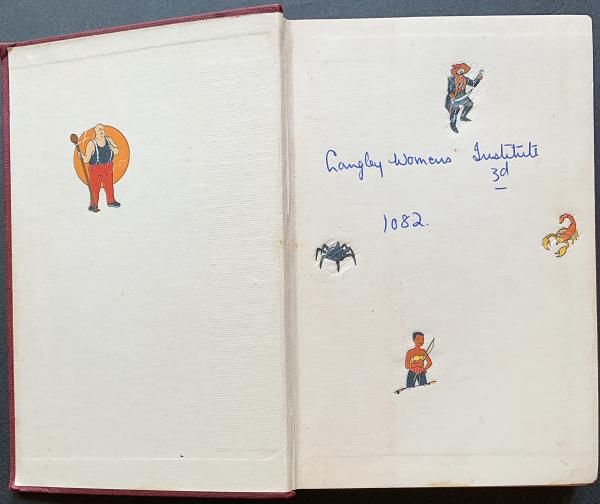 Langley Womens Institute
3d
1082.